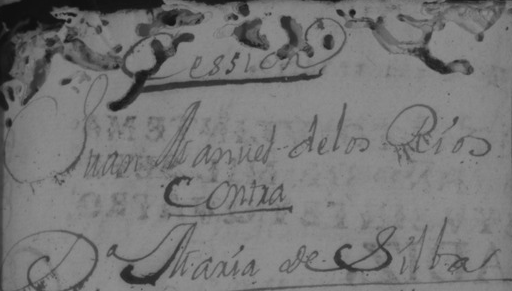 Cession
Juan Manuel de los Ríos
Contra
D.ª María de Silba